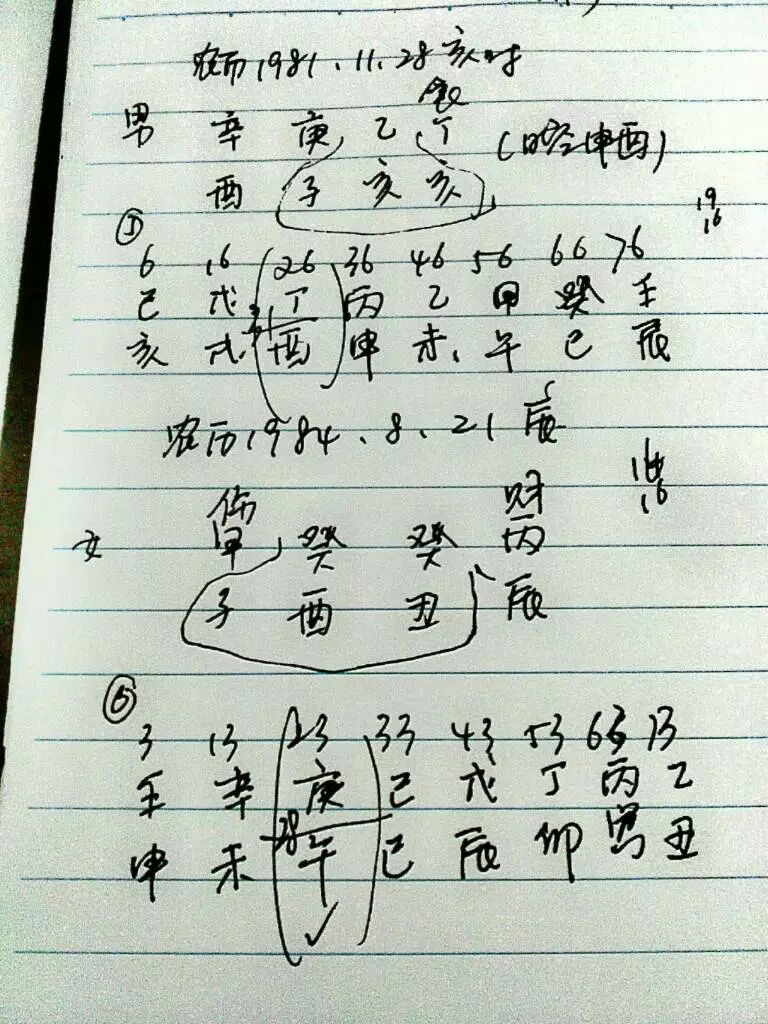 农历1981、11、28亥时
食
男 辛 庚 乙 丁 (时空申酉)
酉 子 亥 亥
①
19
16
6 16 26 36 46 56 66 76
己 戊 丁 丙 乙 甲 癸 壬
亥 戌 酉 申 未 午 巳 辰
农历1984、8、21辰
伤 财
16
女 甲 癸 癸 丙
子 酉 丑 辰
⑥
3 13 23 33 43 53 63 73
壬 辛 庚 己 戊 丁 丙 乙
28
申 未 午 巳 辰 卯 寅 丑